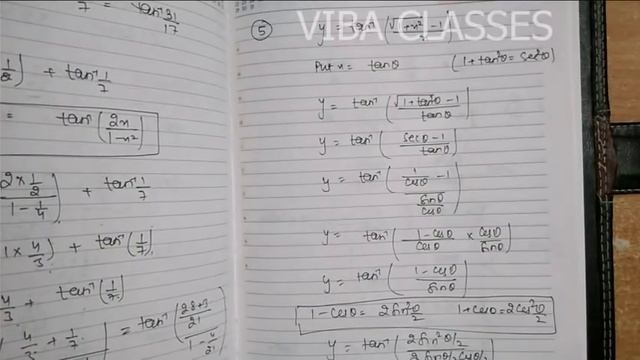 VIBA CLASSES
7 = tan⁻¹ 31/17
+ tan⁻¹ 1/7
= tan⁻¹ (2x/1-x²)
2 × 1/2 / 1 - 1/4) + tan⁻¹ 1/7
1 × 4/3) + tan⁻¹ (1/7)
4/3 + tan⁻¹ (1/7)
4/3 + 1/7 = tan⁻¹ (28+3/21 / 1 - 4/21)
⑤ y = tan⁻¹ (√1+x² - 1
Put x = tanθ (1+tan²θ = sec²θ)
y = tan⁻¹ (√1+tan²θ - 1 / tanθ)
y = tan⁻¹ (secθ - 1 / tanθ)
y = tan⁻¹ (1/cosθ - 1 / sinθ/cosθ)
y = tan⁻¹ (1-cosθ/cosθ × cosθ/sinθ)
y = tan⁻¹ (1-cosθ / sinθ)
1-cosθ = 2sin²θ/2 1+cosθ = 2cos²θ/2
y = tan⁻¹ (2sin²θ/2 / 2sinθ/2 cosθ/2)